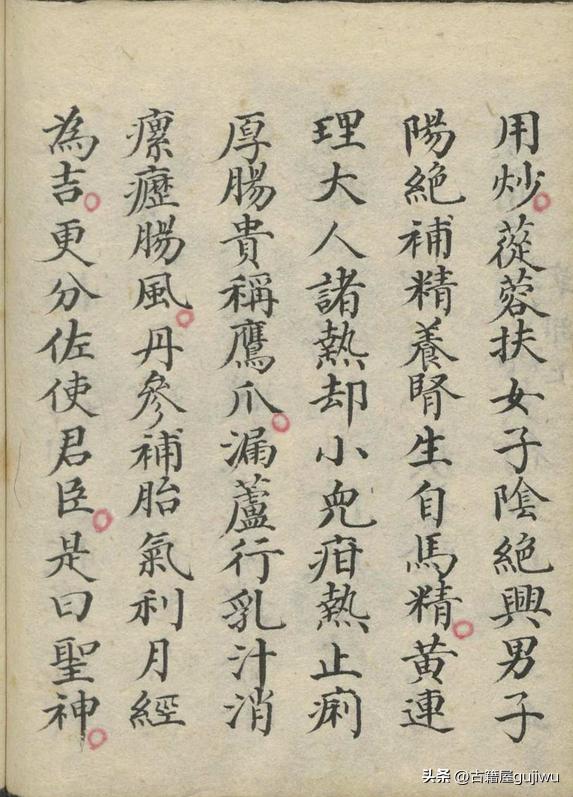 用炒。蓯蓉扶女子陰絕興男子
陽絕補精養腎生自馬精。黃連
理大人諸熱却小兒疳熱止痢
厚腸貴稱鷹爪。漏蘆行乳汁消
瘰癧腸風。丹參補胎氣利月經
為吉。更分佐使君臣。是曰聖神。
头条 @古籍屋gujiwu